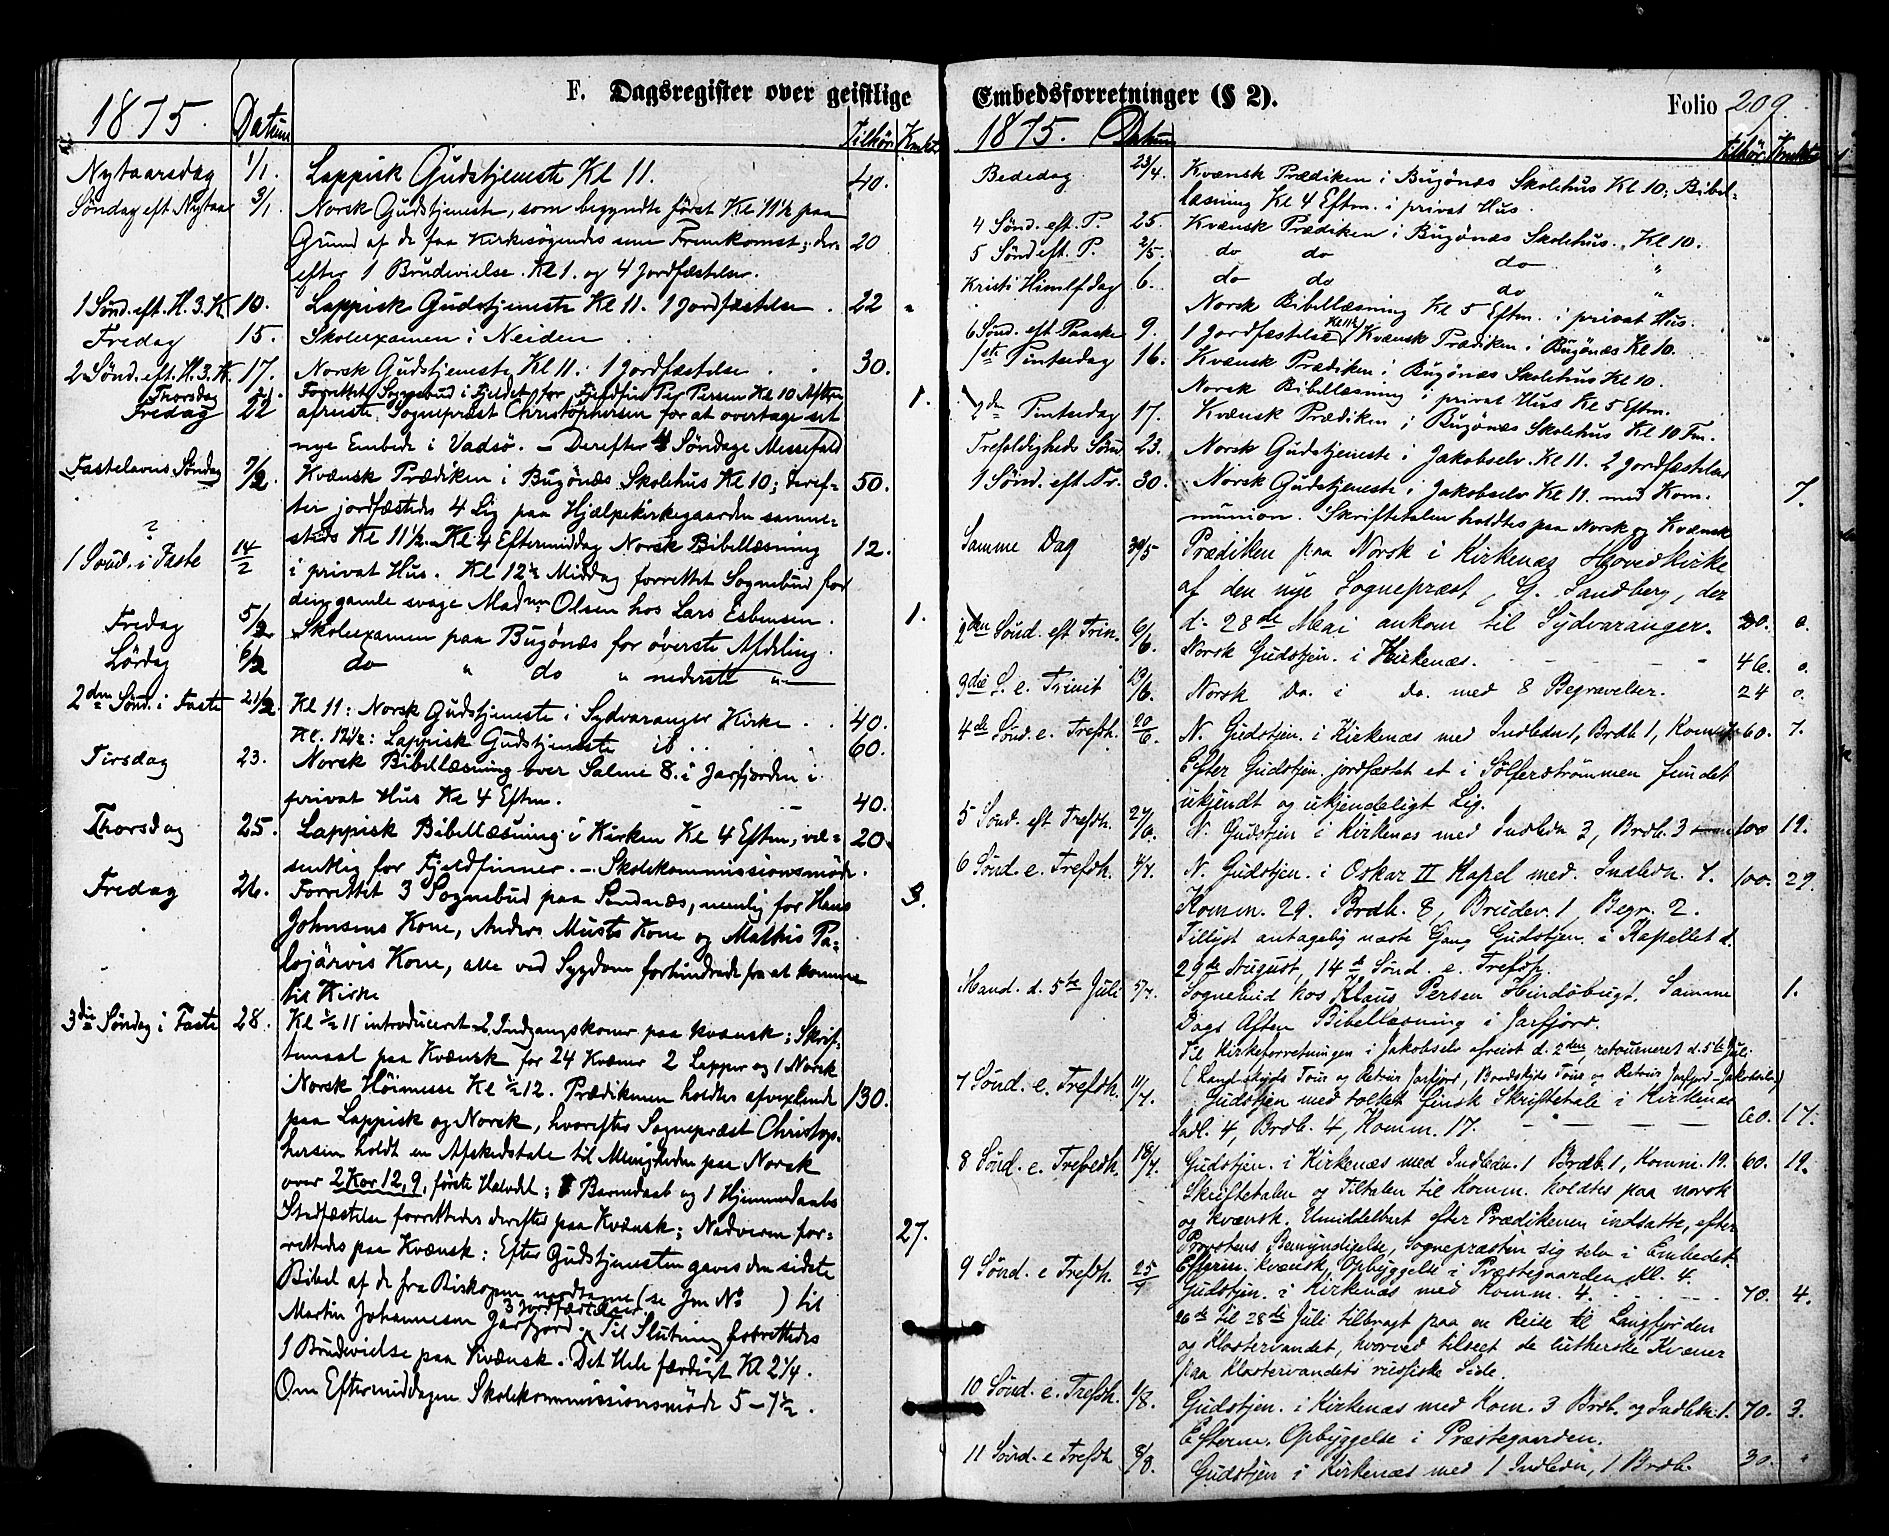 F. Dagsregister over geistlige
1875. Datum Tilhør. Kmkt.
Nytaarsdag 1/1. Lappisk Gudstjeneste Kl 11. 40.
Søndag eft. Nytaar 3/1. Norsk Gudstjeneste, som begyndte først Kl. 11 1/2 paa
Grund af de faa Kirkesøgendes sene Fremkomst; der- 20
efter 1 Brudevielse Kl 1. og 4 Jordfæstelser.
1 Sønd. eft. H. 3. K. 10. Lappisk Gudstjeneste Kl 11. 1 Jordfæstelse . 22 "
Fredag 15. Skoleexamen i Neiden
2 Sønd. eft. H. 3. K. 17. Norsk Gudstjeneste Kl 11. 1 Jordfæstelse . . 30.
Thorsdag 21. Forrettet Sognebud i Fjeldet for Fjeldfin Per Persen Kl 10 Aften 1.
Fredag 22 afreiste Sognepræst Christophersen for at overtage sit
nye Embede i Vadsø. – Derefter 4 Søndage Messefald
Fastelavns Søndag 7/2. Kvænsk Prædiken i Bugønæs Skolehus Kl 10; deref- 50.
ter jordfæstedes 4 Lig paa Hjælpekirkegaarden samme-
?
steds Kl 11 1/2. Kl 4 Eftermiddag Norsk Bibellæsning 12.
1 Sønd. i Faste 14/2 i privat Hus. Kl 12 1/2 Middag forrettet Sognebud for
den gamle svage Mad. Olsen hos Lars Esbensen. 1.
Fredag 5/2 Skoleexamen paa Bugønæs for øverste Afdeling.
Lørdag 6/2 do " do " nederste "
2den Sønd. i Faste 21/2 Kl 11: Norsk Gudstjeneste i Sydvaranger Kirke . . 40.
Kl. 12 1/2: Lappisk Gudstjeneste ib . . . 60.
Tirsdag 23. Norsk Bibellæsning over Salme 8. i Jarfjorden i
privat Hus Kl 4 Eftm. 40.
Thorsdag 25. Lappisk Bibellæsning i Kirken Kl 4 Eftm, væ- 20.
sentlig for Fjeldfinner. – Skolekommissionsmøde.
Fredag 26. Forrettet 3 Sognebud paa Sandnæs, nemlig for Hans 3.
Johnsens Kone, Anders Musts Kone og Mathis Pa-
lojärvis Kone, alle ved Sygdom forhindrede fra at komme
til Kirke
3die Søndag i Faste 28. Kl 1/2 11 introduceret 2 Indgangskoner paa kvænsk; Skrif-
temaal paa Kvænsk for 24 Kvæner 2 Lapper og 1 Norsk
Norsk Høimesse Kl 1/2 12. Prædikenen holdtes afvexlende 130.
paa Lappisk og Norsk, hvorefter Sognepræst Christop-
hersen holdt en Afskedstale til Menigheden paa Norsk
over 2 Kor 12, 9, første Halvdel; Barnedaab og 1 Hjemmedaabs
Stadfæstelse forrettedes derefter paa Kvænsk; Nadveren for- 27.
rettedes paa Kvænsk: Efter Gudstjenesten gaves den sidste
Bibel af de fra Biskopen modtagne (se Jm No ) til
Martin Johannesen Jarfjord. 3 Jordfæstelser. Til Slutning forrettedes
1 Brudevielse paa Kvænsk. Det Hele færdigt Kl 2 1/4.
Om Eftermiddagen Skolekommissionsmøde 5 – 7 1/2.
Embedsforretninger (§ 2). Folio 209.
1875. Datum Tilhør. Kmkt.
Bededag 23/4. Kvænsk Prædiken i Bugønæs Skolehus Kl 10; Bibel-
læsning Kl 4 Eftm. i privat Hus.
4 Sønd. eft. P. 25. Kvænsk Prædiken i Bugønæs Skolehus. Kl 10.
5 Sønd eft. P. 2/5. do do do "
Kristi Himlf.dag 6. do do do "
Norsk Bibellæsning Kl 5 Eftm. i privat Hus.
6 Sønd. eft. Paaske 9. 1 Jordfæstelse Kl 11 1/2 Kvænsk Prædiken i Bugønæs Kl 10.
1ste Pintsedag 16. Kvænsk Prædiken i Bugønæs Skolehus Kl 10.
Norsk Bibellæsning i privat Hus Kl 5 Eftm.
2den Pintsedag 17. Kvænsk Prædiken i Bugønæs Skolehus Kl 10 Fm.
Trefoldigheds Sønd. 23. Norsk Gudstjeneste i Jakobselv. Kl 11. 2 Jordfæstelser
1 Sønd. eft. Tr. 30. Norsk Gudstjeneste i Jakobselv Kl 11. med Kom- 7.
munion. Skriftetalen holdtes paa Norsk og Kvænsk
Samme Dag 30/5 Prædiken paa Norsk i Kirkenæs Hovedkirke
af den nye Sognepræst, G. Sandberg, der
d. 28de Mai ankom til Sydvaranger. 20. o.
2den Sønd. eft Trin. 6/6. Norsk Gudstjen. i Kirkenæs. 46. o.
3die S. e. Trinit 13/6. Norsk Do. i Do. med 8 Begravelser. 24 o.
4de Sønd. e. Trefh. 20/6. N. Gudstjen. i Kirkenæs med Indledn 1, Brdb 1, Komm 60. 7.
Efter Gudstjen. jordfæstet et i Sølferstrømmen fundet
ukjendt og ukjendeligt Lig.
5 Sønd. eft Trefdh. 27/6. N. Gudstjen i Kirkenæs med Indledn 3, Brdb. 3 100 19.
6 Sønd. e. Trefdh. 4/7. N. Gudstjen. i Oskar II Kapel med. Indledn. 7. 100. 29.
Komm. 29. Brdb. 8, Brudev. 1, Begr. 2.
Tillyst antagelig næste Gang Gudstjen. i Kapellet d.
29de August, 14de Sønd. e. Trefdh.
Mand. d. 5te Juli 5/7. Sognebud hos Klaus Persen Hindøbugt. Samme 1.
Dags Aften Bibellæsning i Jarfjord.
Til Kirkeforretningen i Jakobselv afreist d. 2den, retourneret d. 5te Juli
(Landskyds Tour og Retour Jarfjord, Baadskyds Tour og Retour Jarfjord – Jakobselv)
7 Sønd. e. Trefdh. 11/7. Gudstjen med tolket finsk Skriftetale i Kirkenæs
Indl. 4, Brdb. 4, Komm. 17. 60. 17.
8 Sønd. e. Trefdh. 18/7. Gudstjen. i Kirkenæs med Indledn. 1 Brdb. 1, Komm. 19. 60. 19.
Skriftetalen og Tiltalen til Komm. holdtes paa norsk
og kvænsk. Umiddelbart efter Prædikenen indsatte, efter
Provstens Bemyndigelse, Sognepræsten sig selv i Embedet.
Efterm. kvænsk Opbyggelse i Præstegaarden Kl. 4.
9 Sønd. e Trefdh. 25/7 Gudstjen. i Kirkenæs med Komm. 4. 70. 4.
26de til 28de Juli tilbragt paa en Reise til Langfjorden
og Klostervandet, hvorved tilseet de lutherske Kvæner
paa Klostervandets russiske Side.
10 Sønd. e. Trefdh. 1/8. Gudstjen. i Kirkenæs med Kom. 3 Brdb. og Indledn. 1. 70. 3.
Efterm. Opbyggelse i Præstegaarden.
11 Sønd. e Trefdh 8/8. Gudstjen i Kirkenæs med 1 Indledn, 1 Brdb. 30.